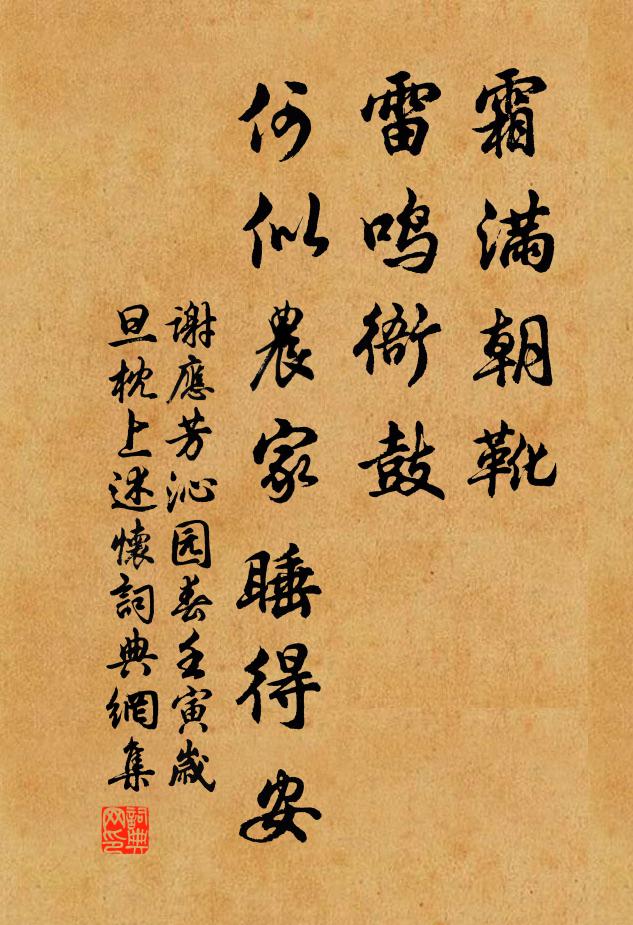 霜满朝靴
雷鸣衙鼓
何似農家睡得安
謝應芳沁园春壬寅歲
旦枕上述懷詞典網集
詞典网印